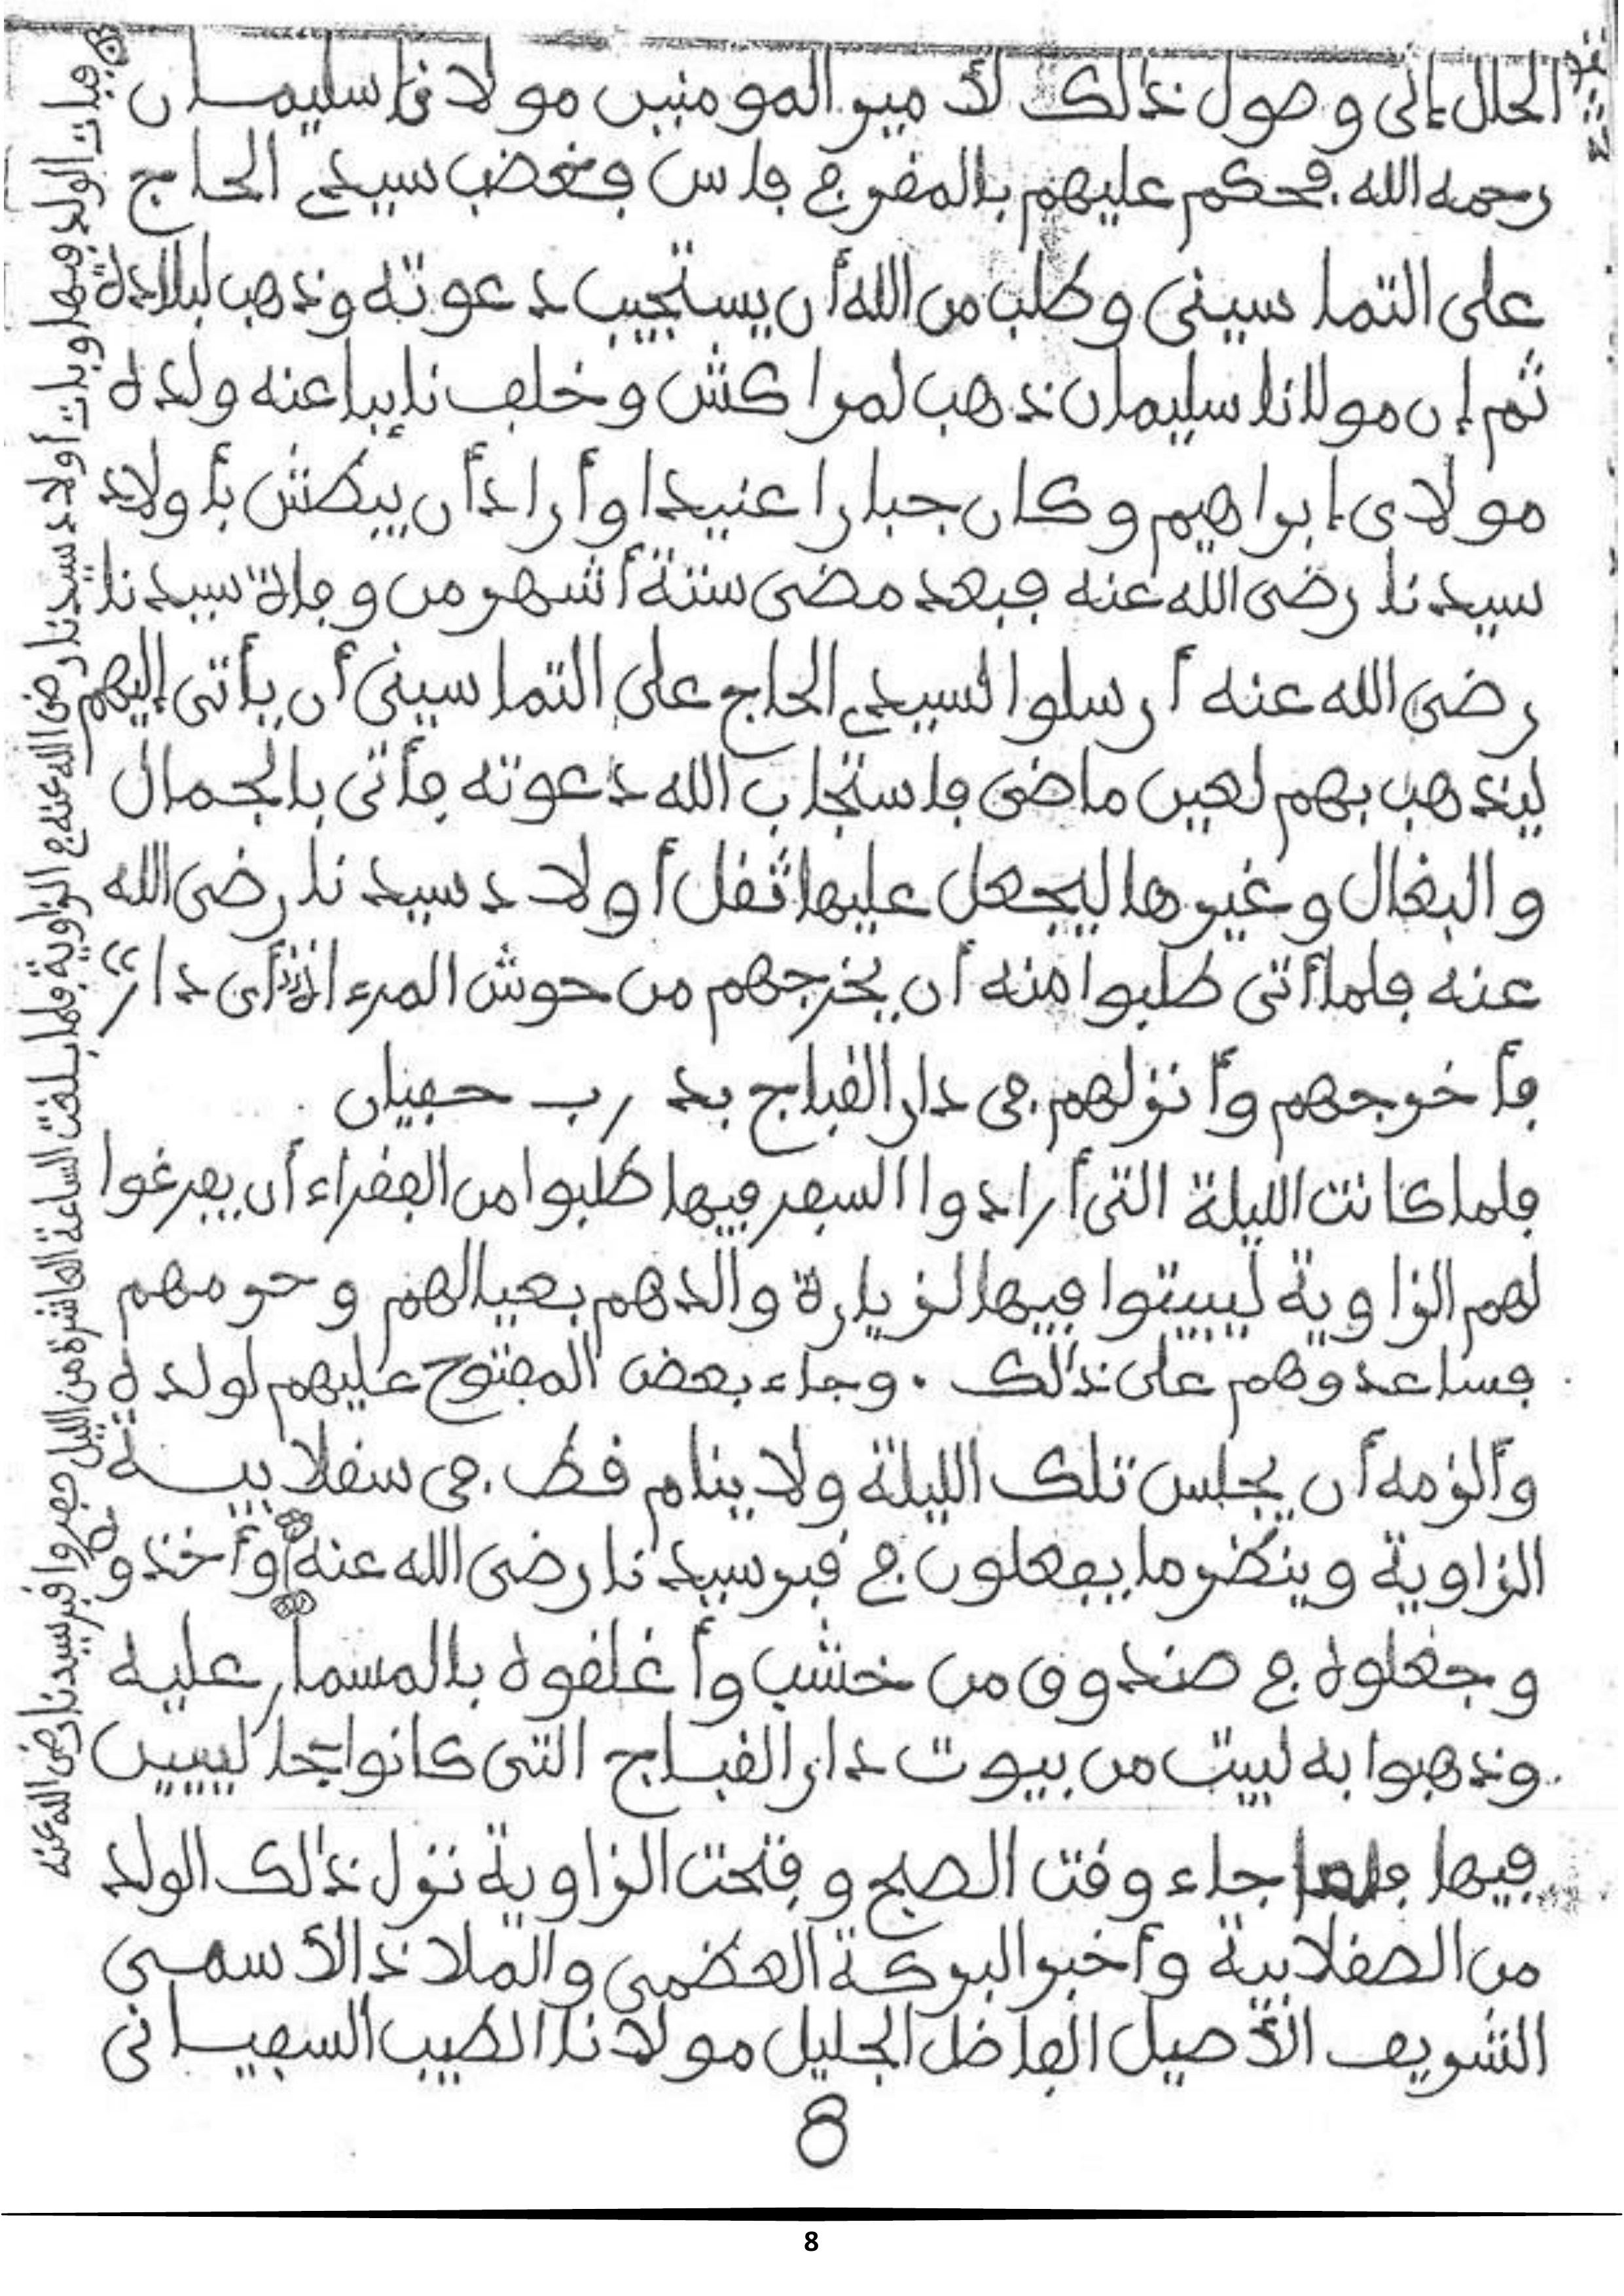 الحلال إلى وصول ذلك لأمير المومنين مولانا سليمان
رحمه الله. فحكم عليهم بالمفر في فاس فغضب سيدي الحاج
على التماسيني وطلب من الله أن يستجيب دعوته وذهب لبلاده
ثم إن مولانا سليمان ذهب لمراكش وخلف نايبا عنه ولده
مولاي إبراهيم وكان جبارا عنيدا وأراد أن يبطش بأولاد
سيدنا رضي الله عنه فبعد مضى ستة أشهر من وفاة سيدنا
رضي الله عنه أرسلوا لسيدي الحاج علي التماسيني أن يأتي إليهم
ليذهب بهم لعين ماضي فاستجاب الله دعوته فأتى بالجمال
والبغال وغيرها ليجعل عليها ثقل أولاد سيدنا رضي الله
عنه فلما أتى طلبوا منه أن يخرجهم من حوش المرءاة أي دار
فأخرجهم وأنزلهم في دار القباج بدرب حفيان
فلما كانت الليلة التي أرادوا السفر فيها طلبوا من الفقراء أن يفرغوا
لهم الزاوية ليبيتوا فيها لزيارة والدهم بعيالهم وحرمهم
فساعدوهم على ذلك. وجاء بعض المفتوح عليهم لولده
وألزمه أن يجلس تلك الليلة ولا ينام قط في سقلابيـة
الزاوية وينظر ما يفعلون في قبر سيدنا رضي الله عنه وأخذوه
وجعلوه في صندوق من خشب وأغلقوه بالمسمار عليه
وذهبوا به لبيت من بيوت دار القباج التي كانوا جالسين
فيها فلما جاء وقت الصبح وفتحت الزاوية نزل ذلك الولد
من الصقلابية وأخبر البركة العظمى والملاذ الأسمى
الشريف الأصيل الفاضل الجليل مولانا الطيب السفياني
8
فبات الولد فيها وبات أولاد سيدنا رضي الله عنه في الزاوية فلما بلغت الساعة العاشرة من الليل حفروا قبر سيدنا رضي الله عنه
8